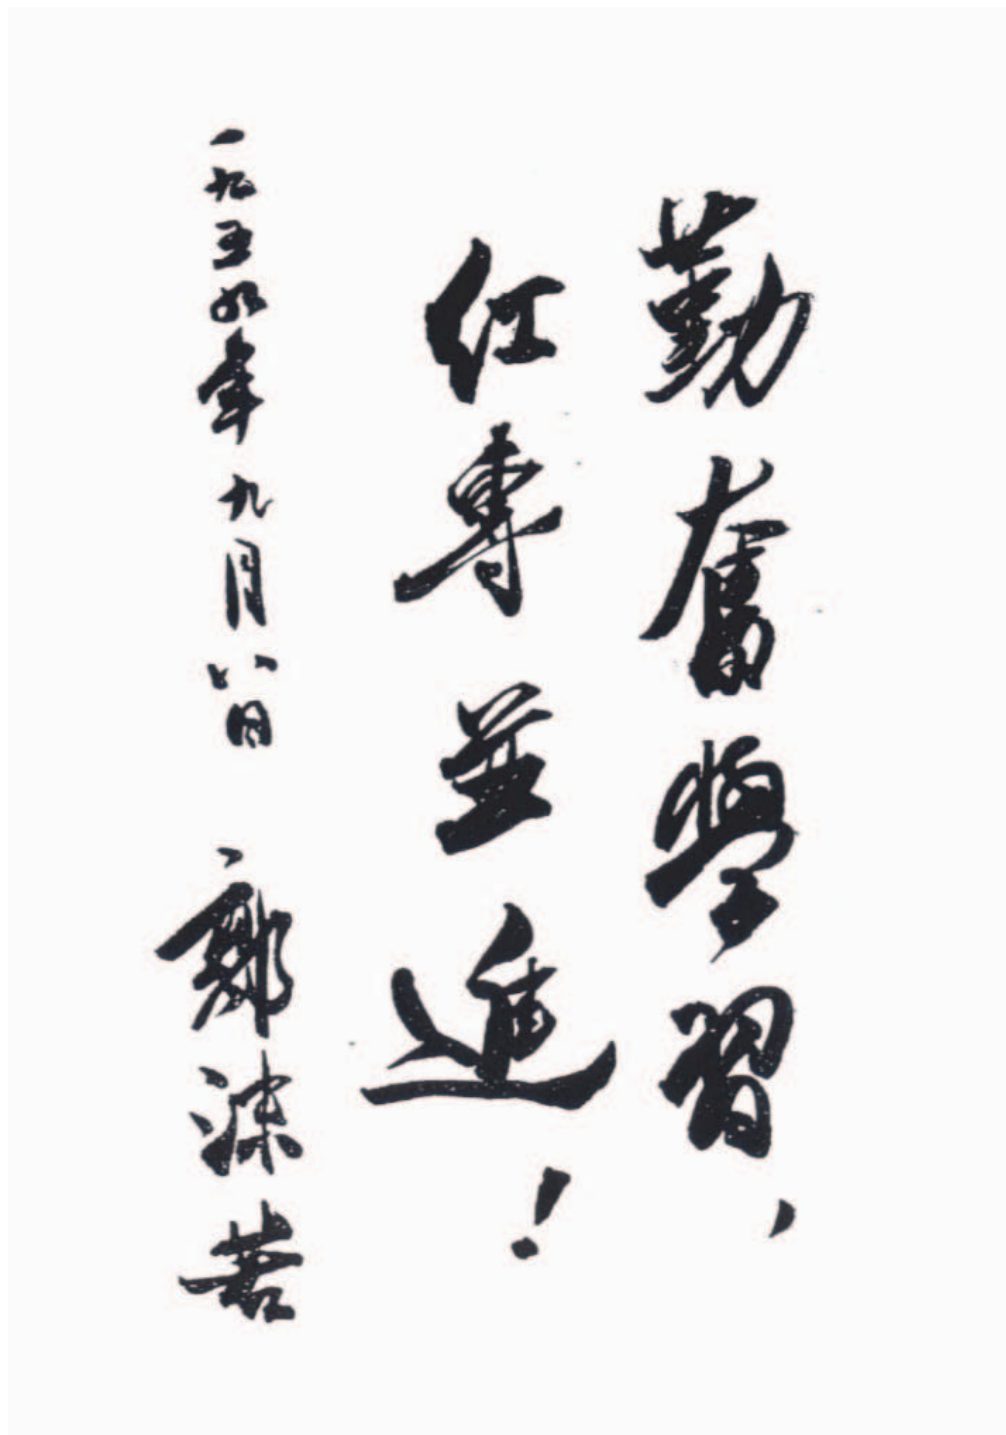 勤奮學習、
紅專並進！
一九五九年九月八日 郭沫若